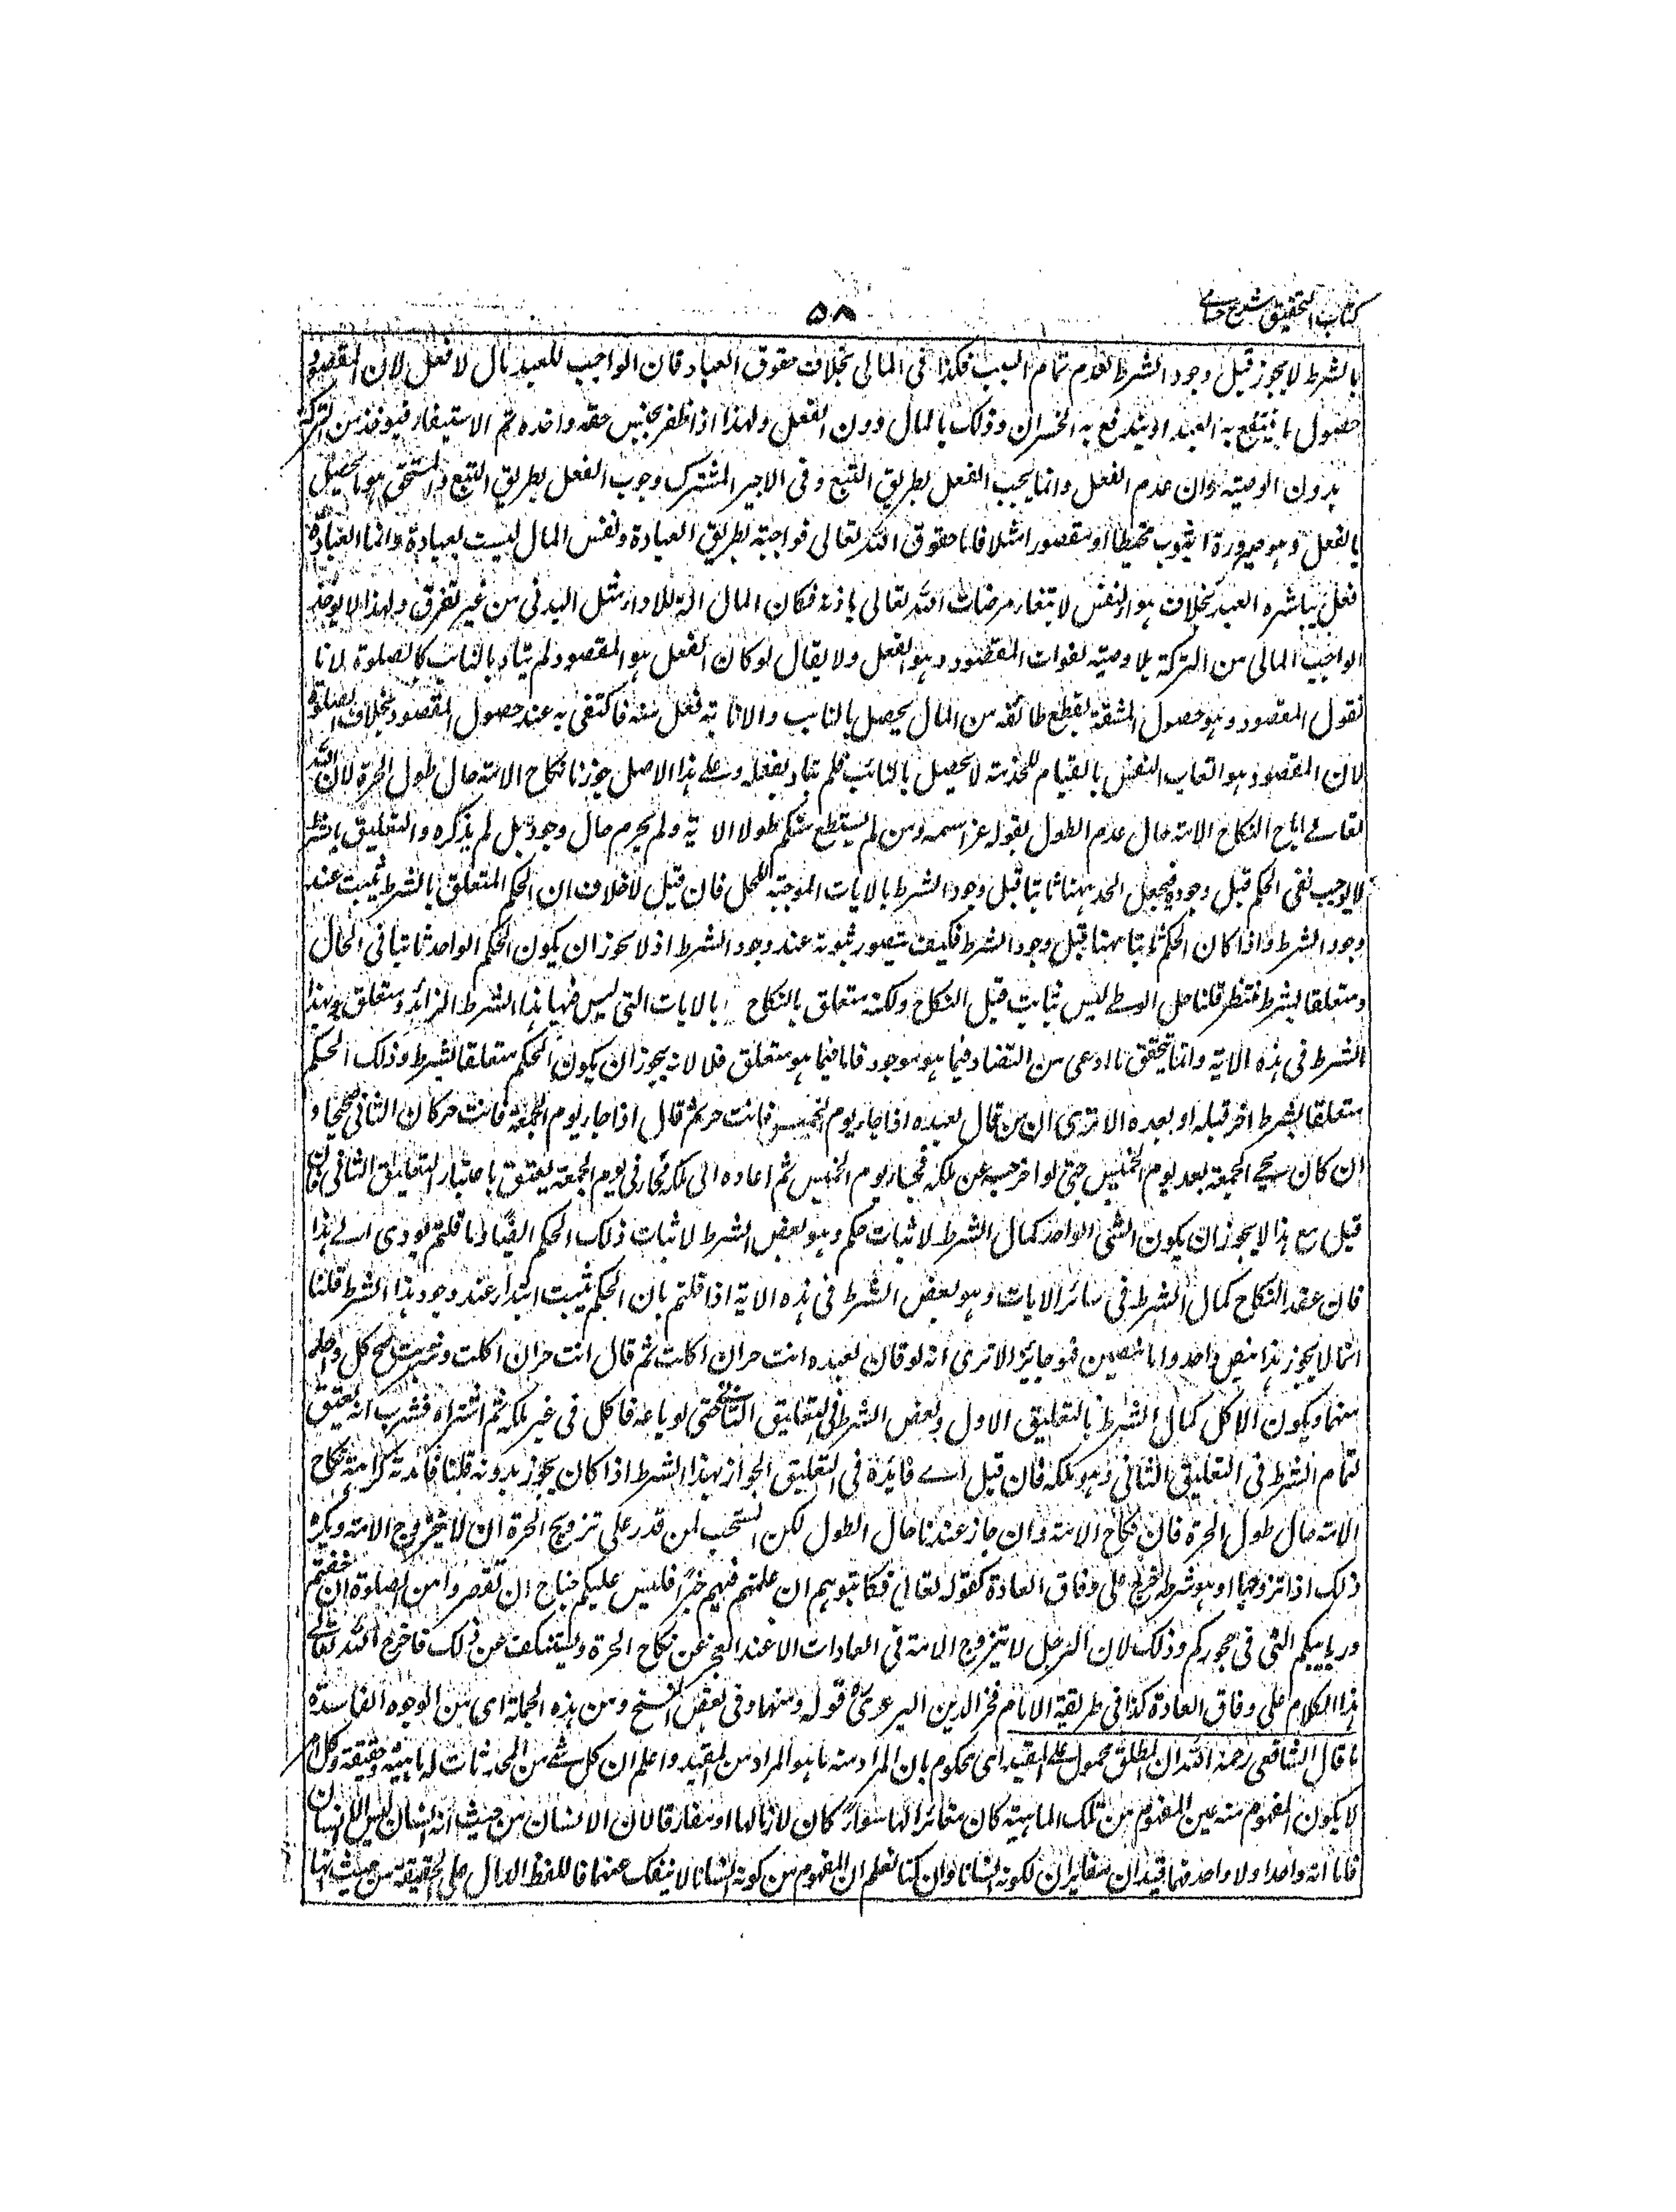 كتاب التحقيق شرح حسامي
٥٨
بالشرط لا يجوز قبل وجود الشرط لعدم تمام السبب فكذا فى المالى بخلاف حقوق العباد فان الواجب للعبد مال لا فعل لان المقصود
حصول ما ينتفع به العبد او يندفع به الخسران وذلك بالمال دون الفعل ولهذا اذا ظفر بجنس حقه واخذه تم الاستيفاء فيوخذ من التركة
بدون الوصية وان عدم الفعل وانما يجب الفعل بطريق التبع وفى الاجير المشترك وجوب الفعل بطريق التبع والمستحق هو ما يحصل
بالفعل وهو صيرورة الثوب مخيطا او مقصورا مثلا فاما حقوق الله تعالى فواجبة بطريق العبادة ونفس المال ليست بعبادة وانما العبادة
فعل يباشره العبد بخلاف هوا النفس لابتغاء مرضات الله تعالى باذنه فكان المال الة للاداء مثل البدنى من غير تفرق ولهذا لا يوخذ
الواجب المالى من التركة بلا وصية لفوات المقصود وهو الفعل ولا يقال لو كان الفعل هو المقصود لم يتاد بالنائب كالصلوة لانا
نقول المقصود وهو حصول المشقة بقطع طائفة من المال يحصل بالنايب والانابة فعل منه فاكتفى به عند حصول المقصود بخلاف الصلوة
لان المقصود هو اتعاب النفس بالقيام للخدمة لا يحصل بالنائب فلم يتاد بفعله وعلى هذا الاصل جوزنا نكاح الامة حال طول الحرة لان الله
تعالے اباح النكاح الامة حال عدم الطول بقوله عز اسمه ومن لم يستطع منكم طولا الاية ولم يحرم حال وجوده بل لم يذكره والتعليق بالشرط
لا يوجب نفى الحكم قبل وجوده فيجعل الحد ههنا ثابتا قبل وجود الشرط بالايات الموجبة للحل فان قيل لا خلاف ان الحكم المتعلق بالشرط يثبت عند
وجود الشرط واذا كان الحكم ثابتا ههنا قبل وجود الشرط فكيف يتصور ثبوته عند وجود الشرط اذ لا يجوز ان يكون الحكم الواحد ثابتا فى الحال
ومتعلقا بشرط منتظر قلنا حل الوطى ليس بثابت قبل النكاح ولكنه متعلق بالنكاح بالايات التى ليس فيها هذا الشرط الزائد ومتعلق بهذا
الشرط فى هذه الاية وانما يتحقق ما ادعى من التضاد فيما هو موجود فاما فيما هو متعلق فلا لانه يجوز ان يكون الحكم متعلقا بشرط وذلك الحكم
متعلقا بشرط اخر قبله او بعده الا ترى ان من قال لعبده اذا جاء يوم الخميس فانت حر ثم قال اذا جاء يوم الجمعة فانت حر كان الثانى صحيحا و
ان كان يجے الجمعة بعد يوم الخميس حتى لو اخرجه عن ملكه فجاء يوم الخميس ثم اعاده الى ملكه فجاء فى يوم الجمعة يعتق باعتبار التعليق الثانى فان
قيل مع هذا لا يجوز ان يكون الشئ الواحد كمال الشرط لاثبات حكم وهو بعض الشرط لاثبات ذلك الحكم ايضا وما قلتم يودى الے هذا
فان عقد النكاح كمال الشرط فى سائر الايات وهو بعض الشرط فى هذه الاية اذا قلتم بان الحكم يثبت ابتداء عند وجود هذا الشرط قلنا
انما لا يجوز هذا بنص واحد واما بنصين فهو جايز الا ترى انه لو قال لعبده انت حر ان اكلت ثم قال انت حر ان اكلت وشربت صح كل واحد
منهما ويكون الاكل كمال الشرط بالتعليق الاول وبعض الشرط فى التعليق الثانى حتى لو باعه فاكل فى غير ملكه ثم اشتراه فشرب انه يعتق
لتمام الشرط فى التعليق الثانى وهو ملكه فان قيل اے فايدة فى التعليق الجواز بهذا الشرط اذا كان يجوز بدونه قلنا فائدته كراهة نكاح
الامة حال طول الحرة فان نكاح الامة وان جاز عندنا حال الطول لكن المستحب لمن قدر على تزويج الحرة ان لا يتزوج الامة ويكره
ذلك اذا تزوجها او هو شرط خرج على وفاق العادة كقوله تعالى فكاتبوهم ان علمتم فيهم خيرا فليس عليكم جناح ان تقصروا من الصلوة ان خفتم
وربايبكم التى فى حجوركم وذلك لان الرجل لا يتزوج الامة فى العادات الا عند العجز عن نكاح الحرة ويستنكف عن ذلك فاخرج الله تعالے
هذا الكلام على وفاق العادة كذا فى طريقة الامام فخر الدين البرعوى قوله ومنها وفى بعض النسخ ومن هذه الجملة اى من الوجوه الفاسدة
ما قال الشافعى رحمه الله ان المطلق محمول على المقيد اى محكوم بان المراد منه ما هو المراد من المقيد واعلم ان كل شے من المحدثات له ماهية وحقيقة وكل امر
لا يكون المفهوم منه عين المفهوم من تلك الماهية كان مغائرا لها سواء كان لازما لها او مفارقا لان الانسان من حيث انه انسان ليس الا انسان
فاما انه واحد او لا واحد فهما قيدان مغايران لكونه انسانا وان كنا نعلم ان المفهوم من كونه انسانا لا ينفك عنهما فاللفظ الدال على الحقيقة من حيث انها